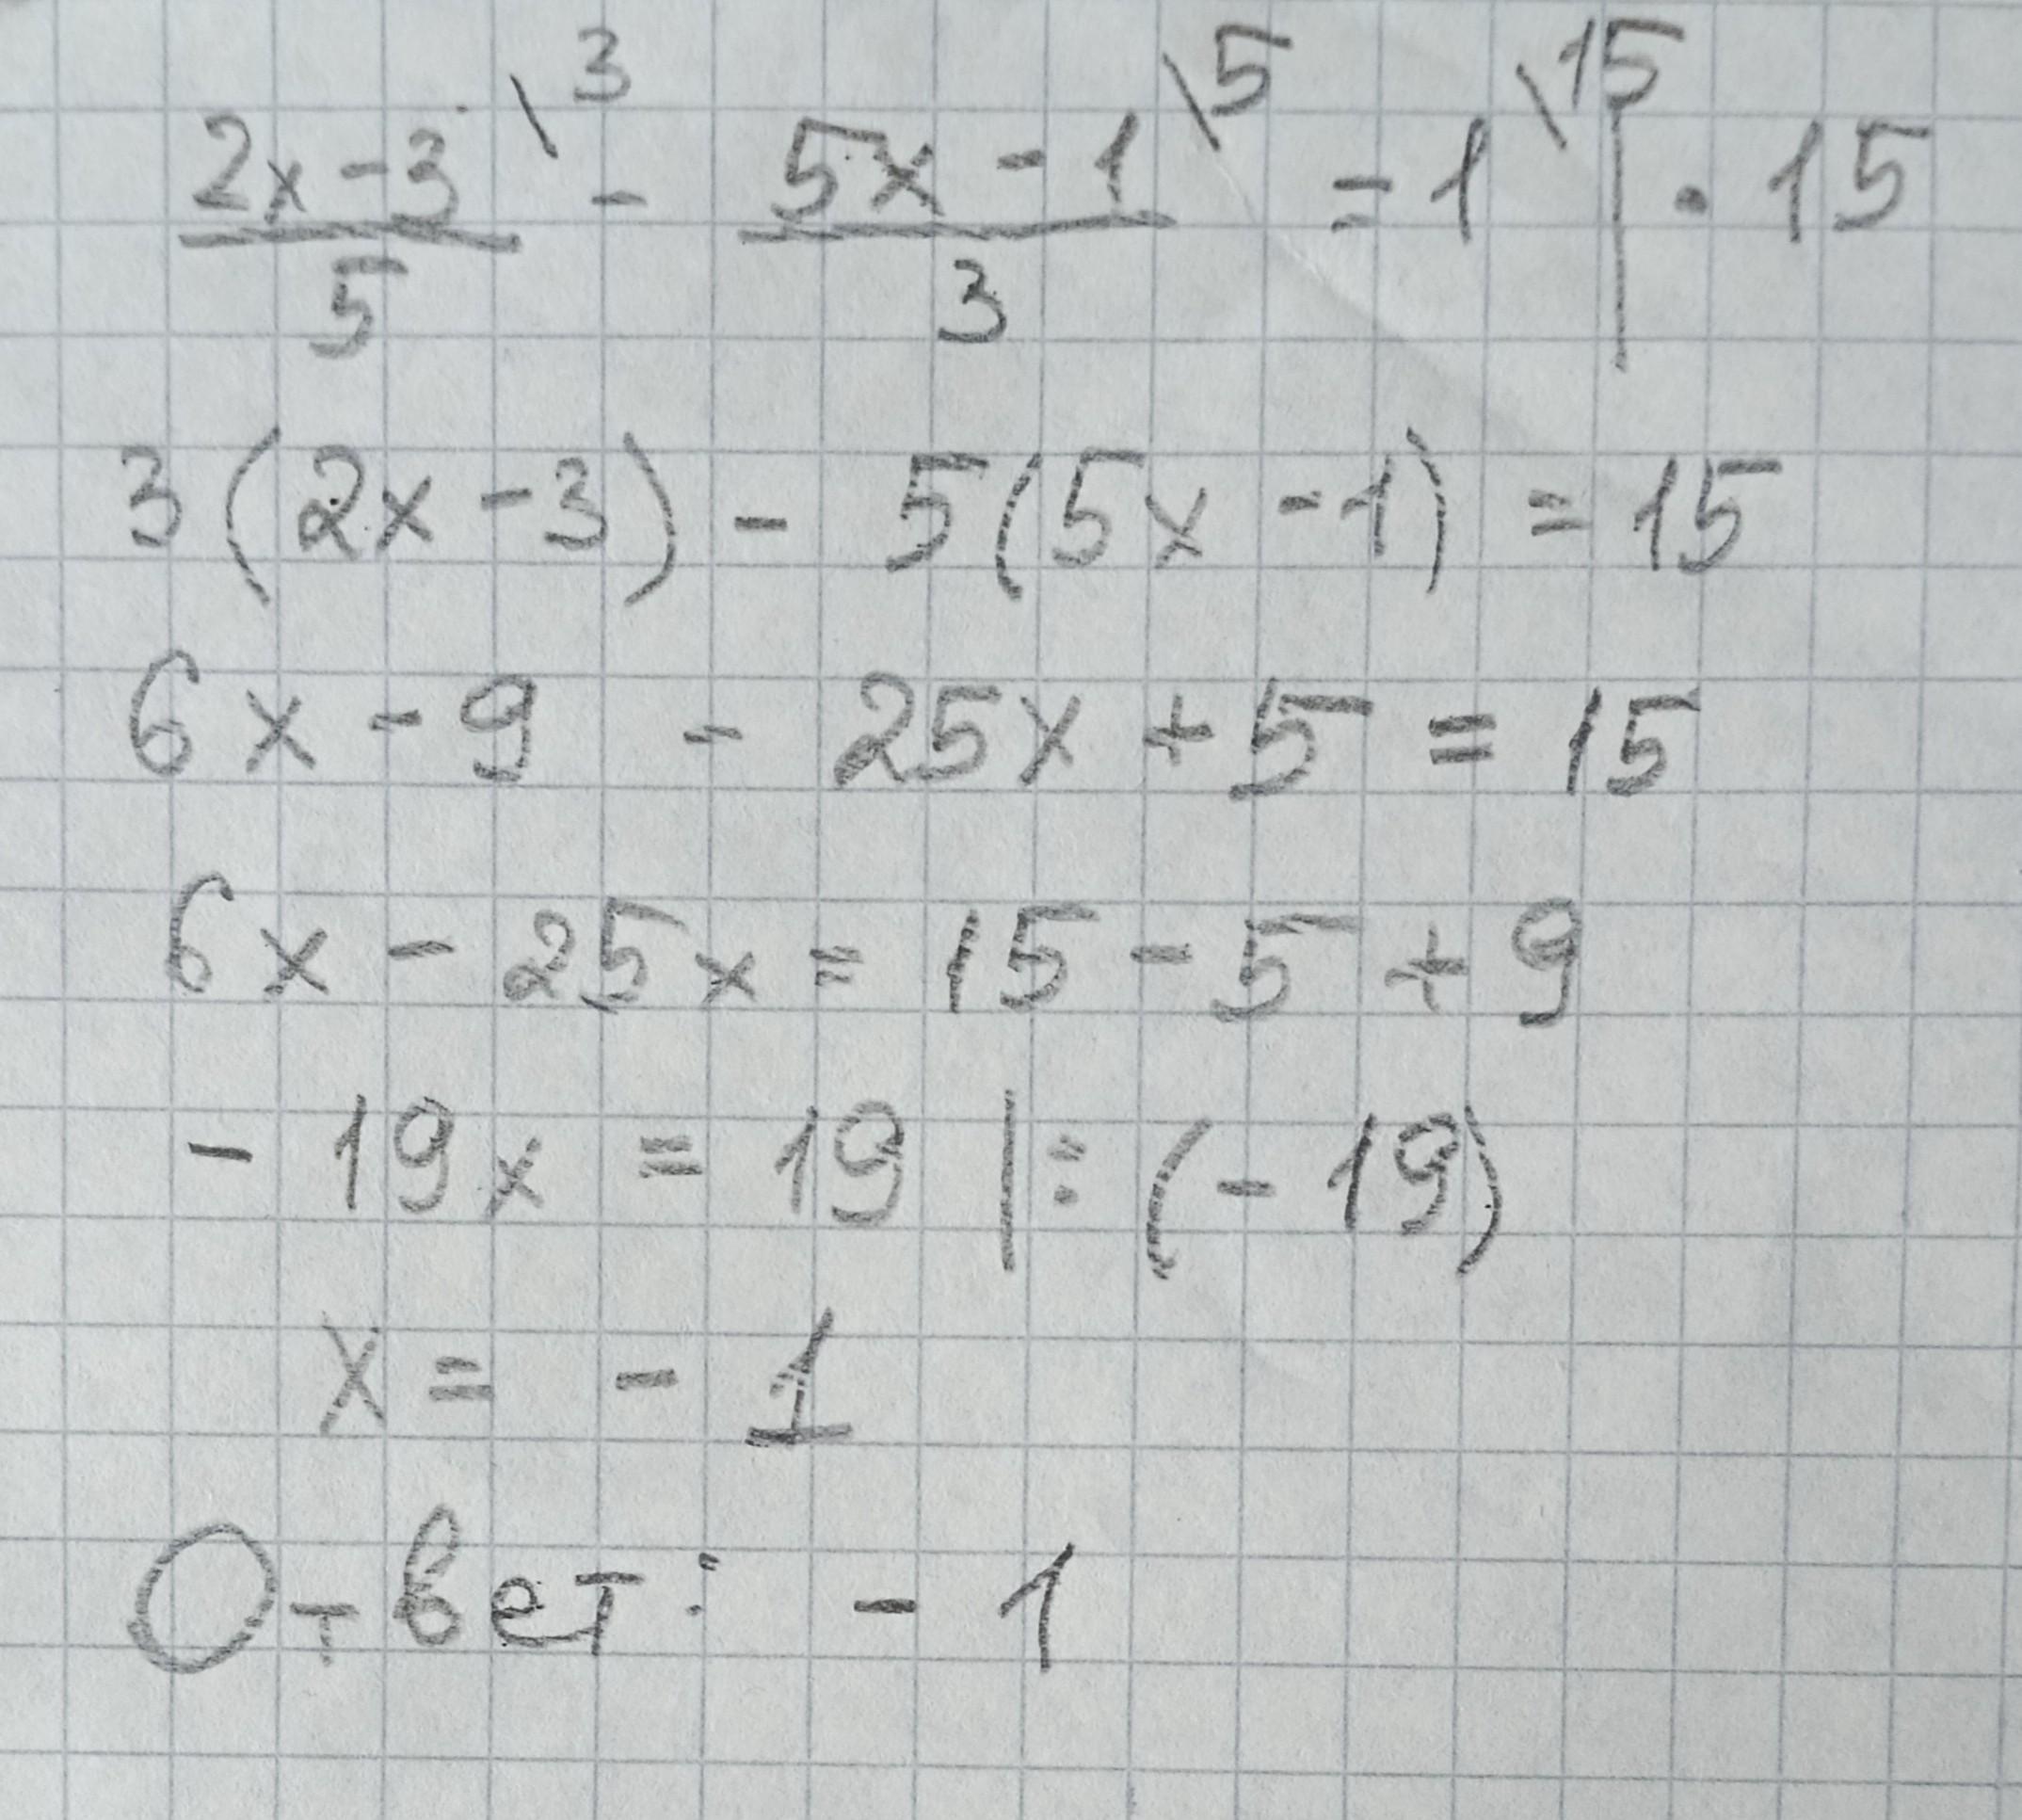 \3 \5 \15
(2x - 3)/5 - (5x - 1)/3 = 1 | · 15
3(2x - 3) - 5(5x - 1) = 15
6x - 9 - 25x + 5 = 15
6x - 25x = 15 - 5 + 9
- 19x = 19 | : (- 19)
x = - 1
Ответ: - 1